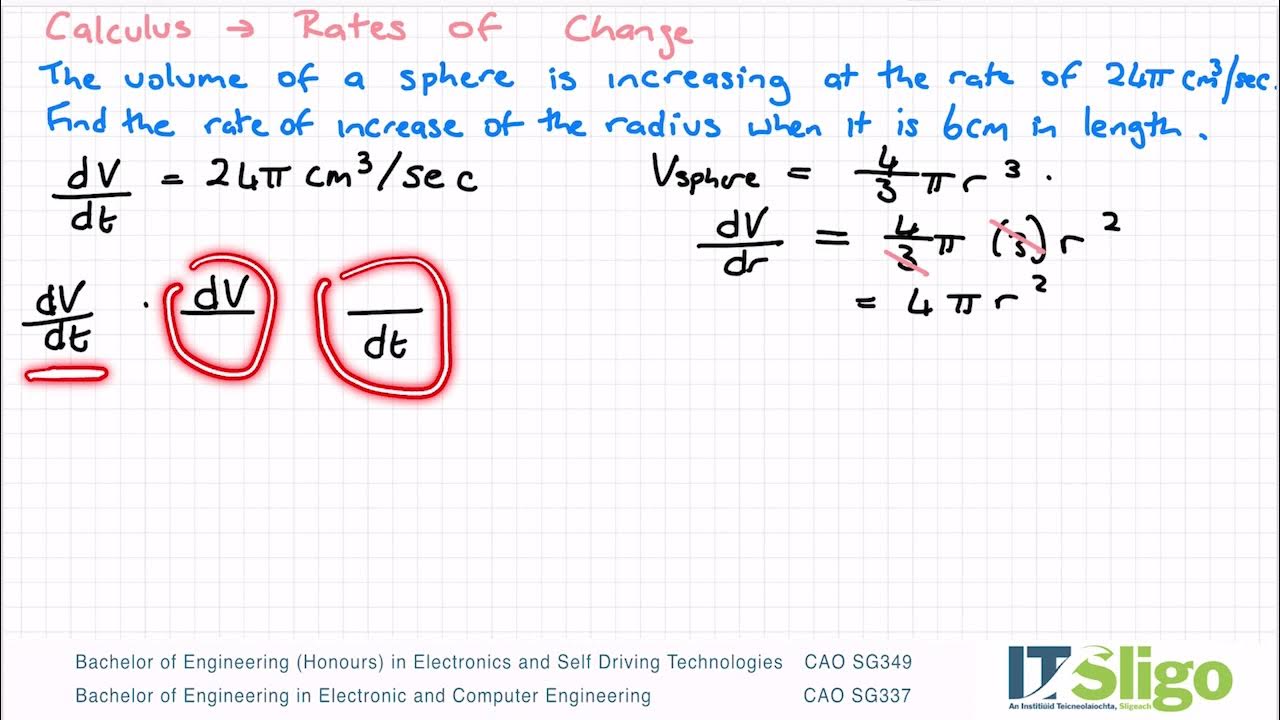 Calculus → Rates of Change
The volume of a sphere is increasing at the rate of 24π cm³/sec.
Find the rate of increase of the radius when it is 6cm in length.
dV/dt = 24π cm³/sec
V sphere = 4/3 π r³.
dV/dr = 4/3 π (3) r²
= 4 π r²
dV/dt · dV/ /dt
Bachelor of Engineering (Honours) in Electronics and Self Driving Technologies CAO SG349
Bachelor of Engineering in Electronic and Computer Engineering CAO SG337
IT Sligo
An Institiúid Teicneolaíochta, Sligeach